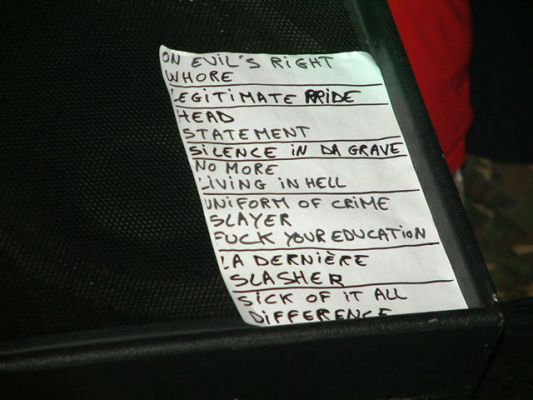 ON EVIL'S RIGHT
WHORE
LEGITIMATE PRIDE
HEAD
STATEMENT
SILENCE IN DA GRAVE
NO MORE
LIVING IN HELL
UNIFORM OF CRIME
SLAYER
FUCK YOUR EDUCATION
LA DERNIÈRE
SLASHER
SICK OF IT ALL
DIFFERENCE